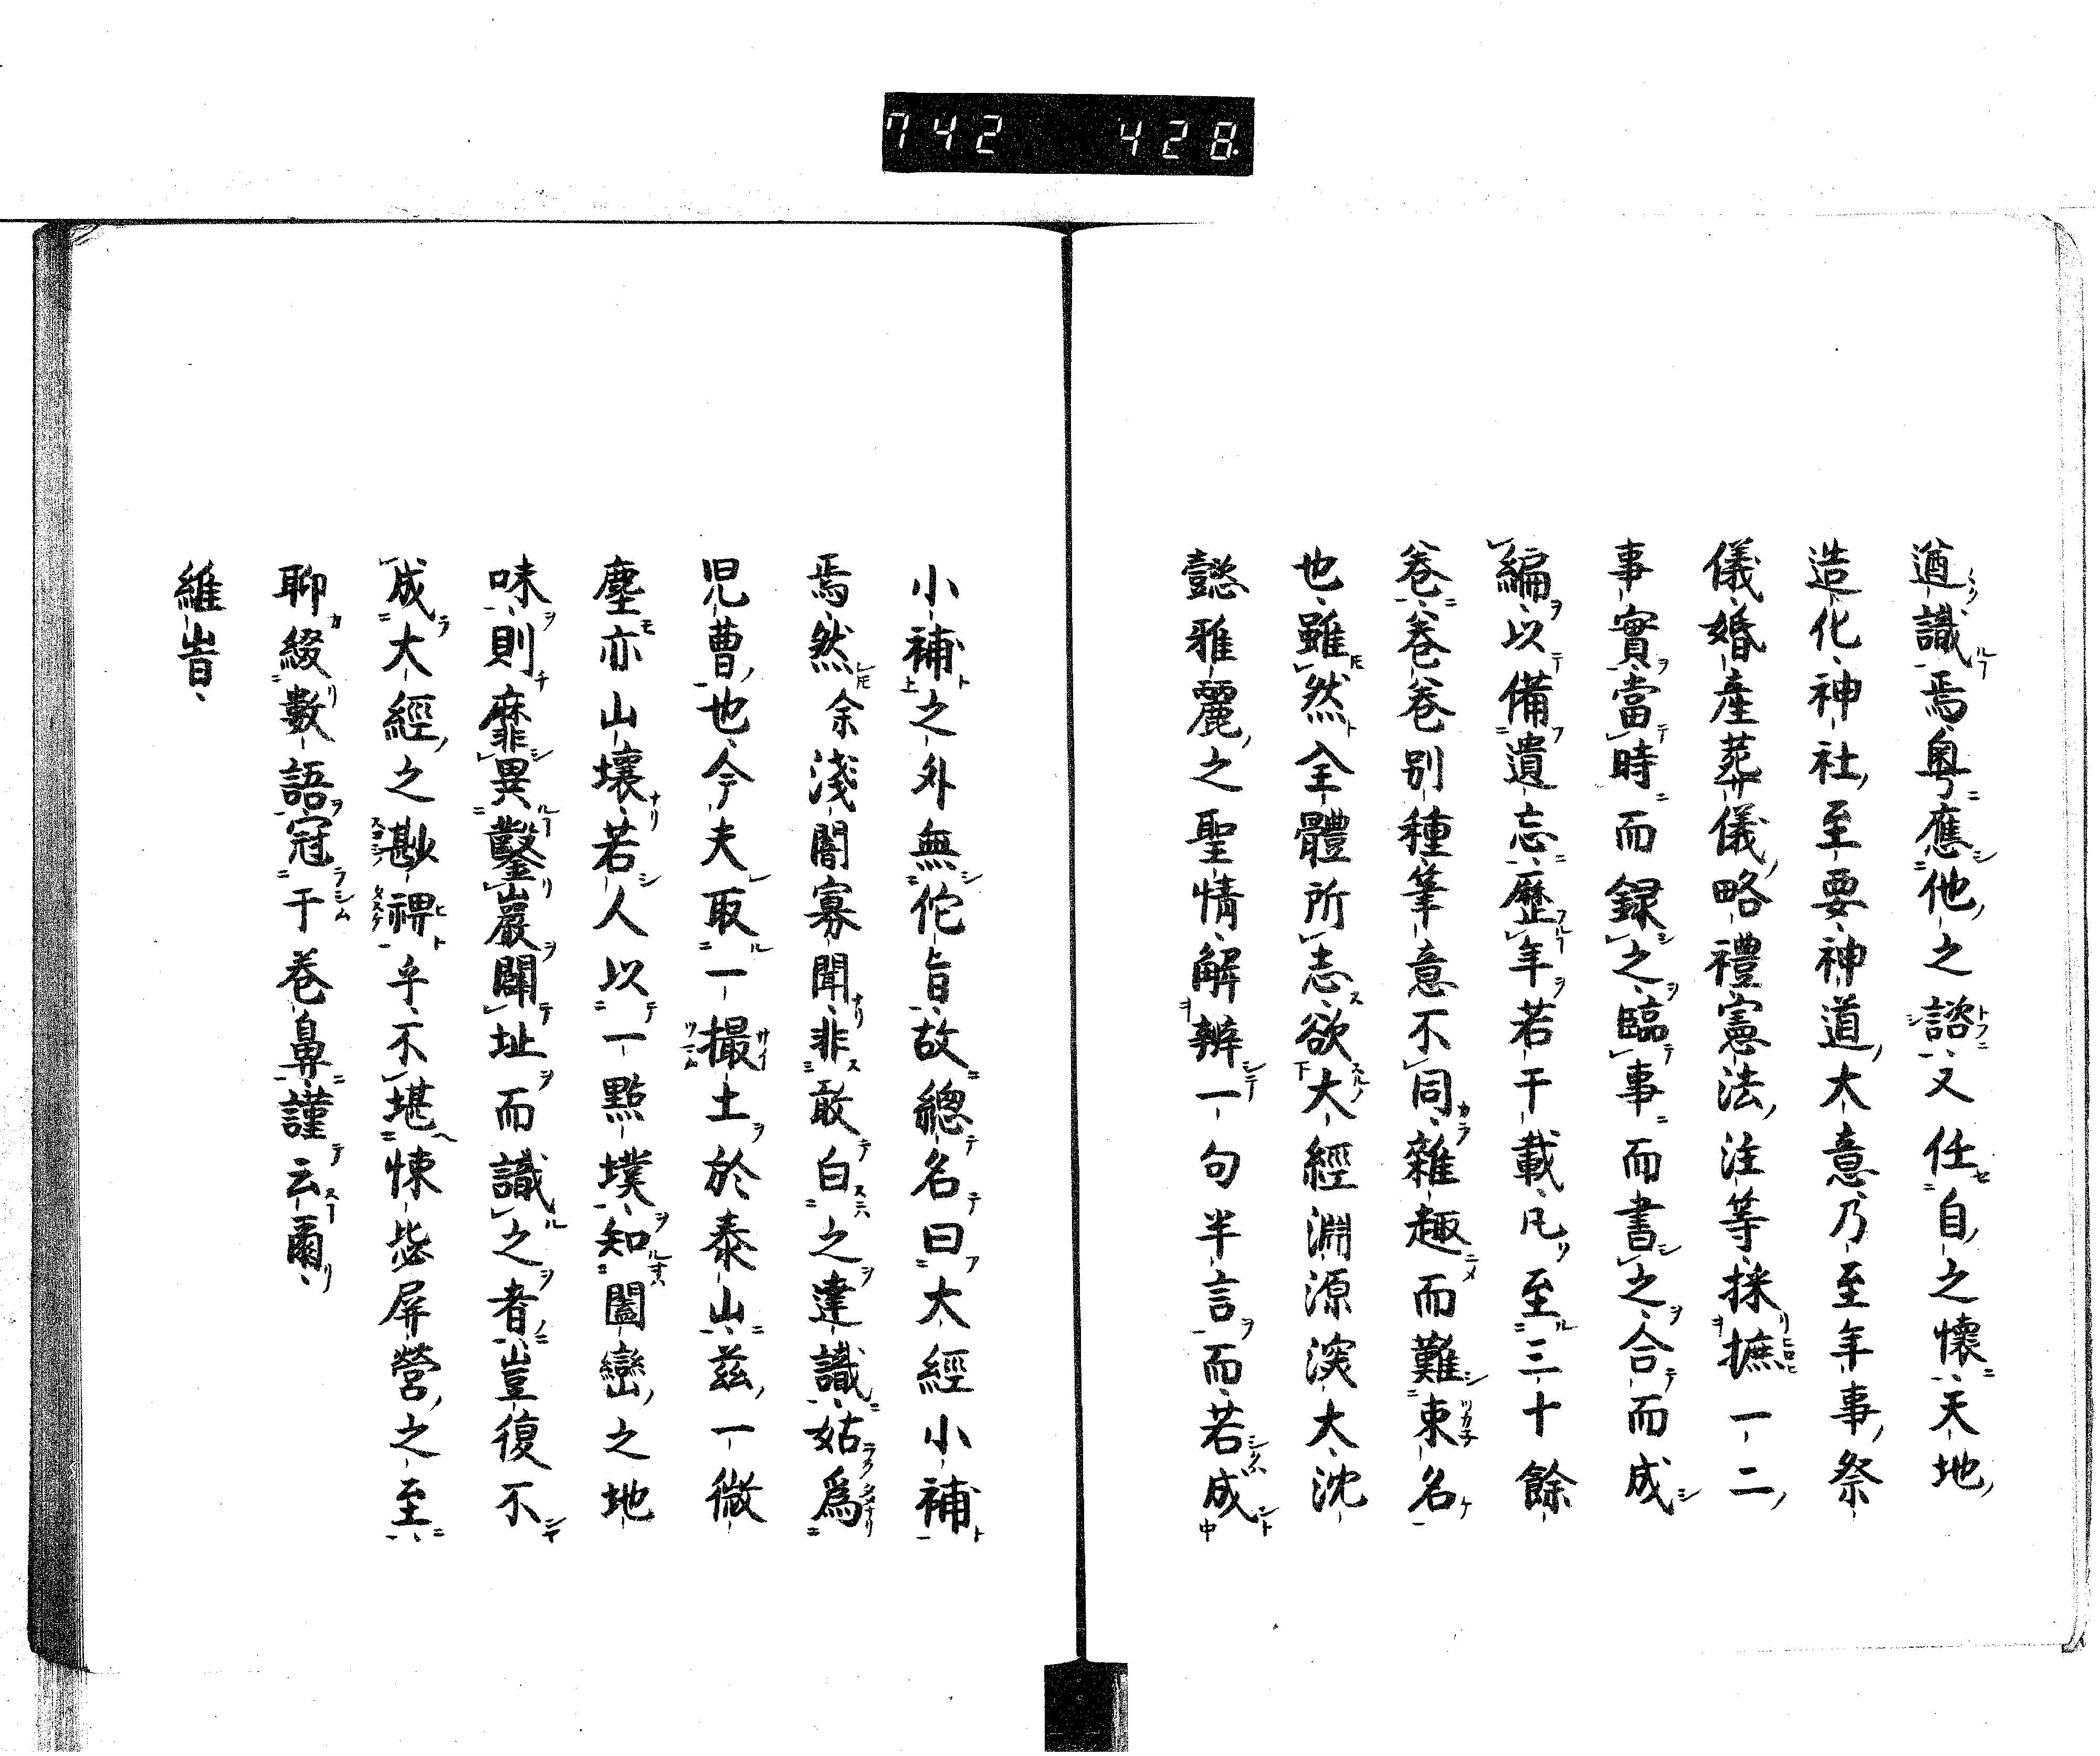 742 428
遒識焉粤應他之諮又任自之懷天地
造化神社至要神道大意乃至年事祭
儀婚産葬儀略禮憲法注等採摭一二
事實當時而録之臨事而書之合而成
編以備遺忘歷年若干載凡至三十餘
卷卷卷別種筆意不同雜趣而難束名
也雖然全體所志欲大經淵源深大沈
懿雅麗之聖情解辨一句半言而若成
小補之外無佗旨故總名曰大經小補
焉然余淺闇寡聞非敢白之達識姑爲
児曹也今夫取一撮土於泰山茲一微
塵亦山壤若人以一點墣知闔巒之地
味則靡異鑿巖闢址而識之者豈復不
成大經之尠裨乎不堪悚毖屏營之至
聊綴數語冠于卷鼻謹云爾
維旹